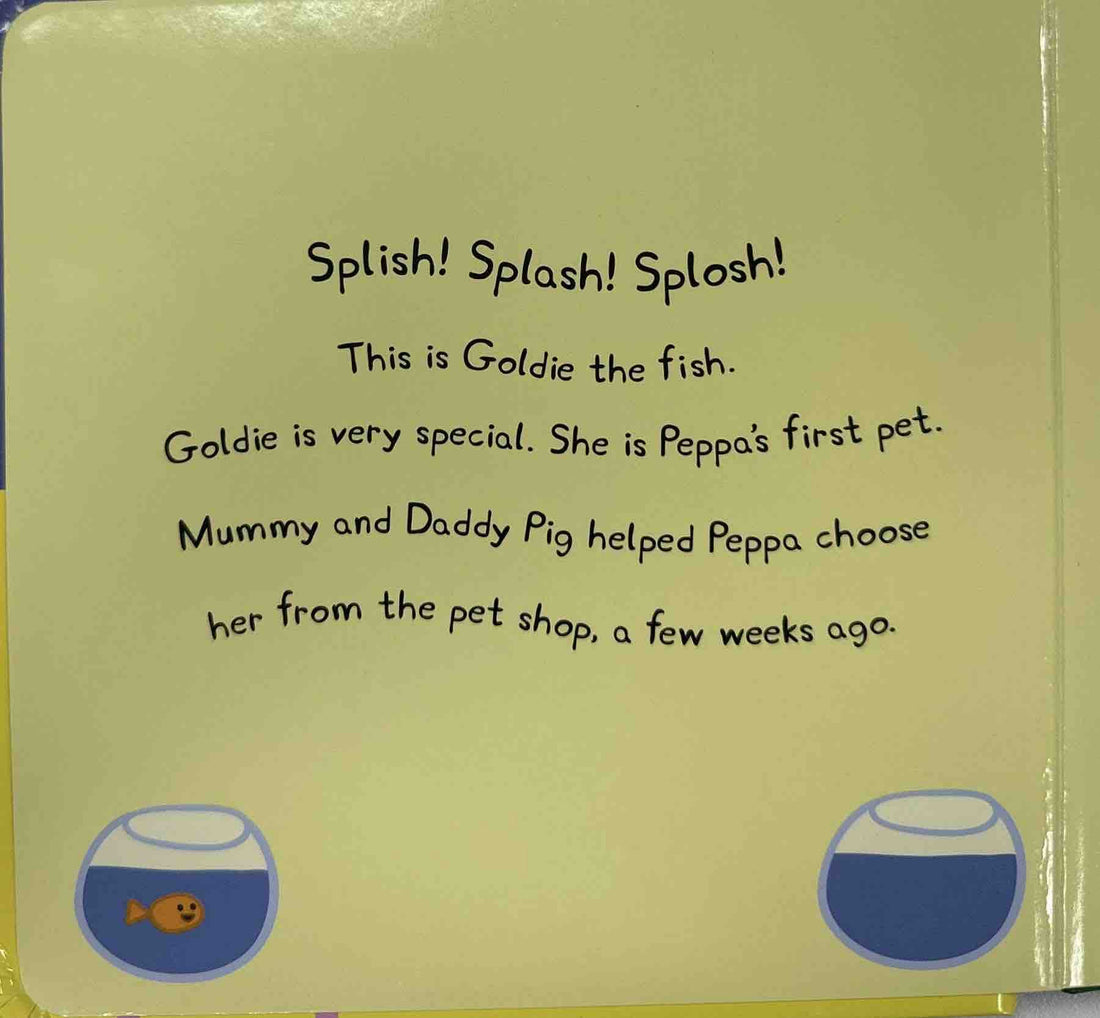 Splish! Splash! Splosh!
This is Goldie the fish.
Goldie is very special. She is Peppa's first pet.
Mummy and Daddy Pig helped Peppa choose
her from the pet shop, a few weeks ago.